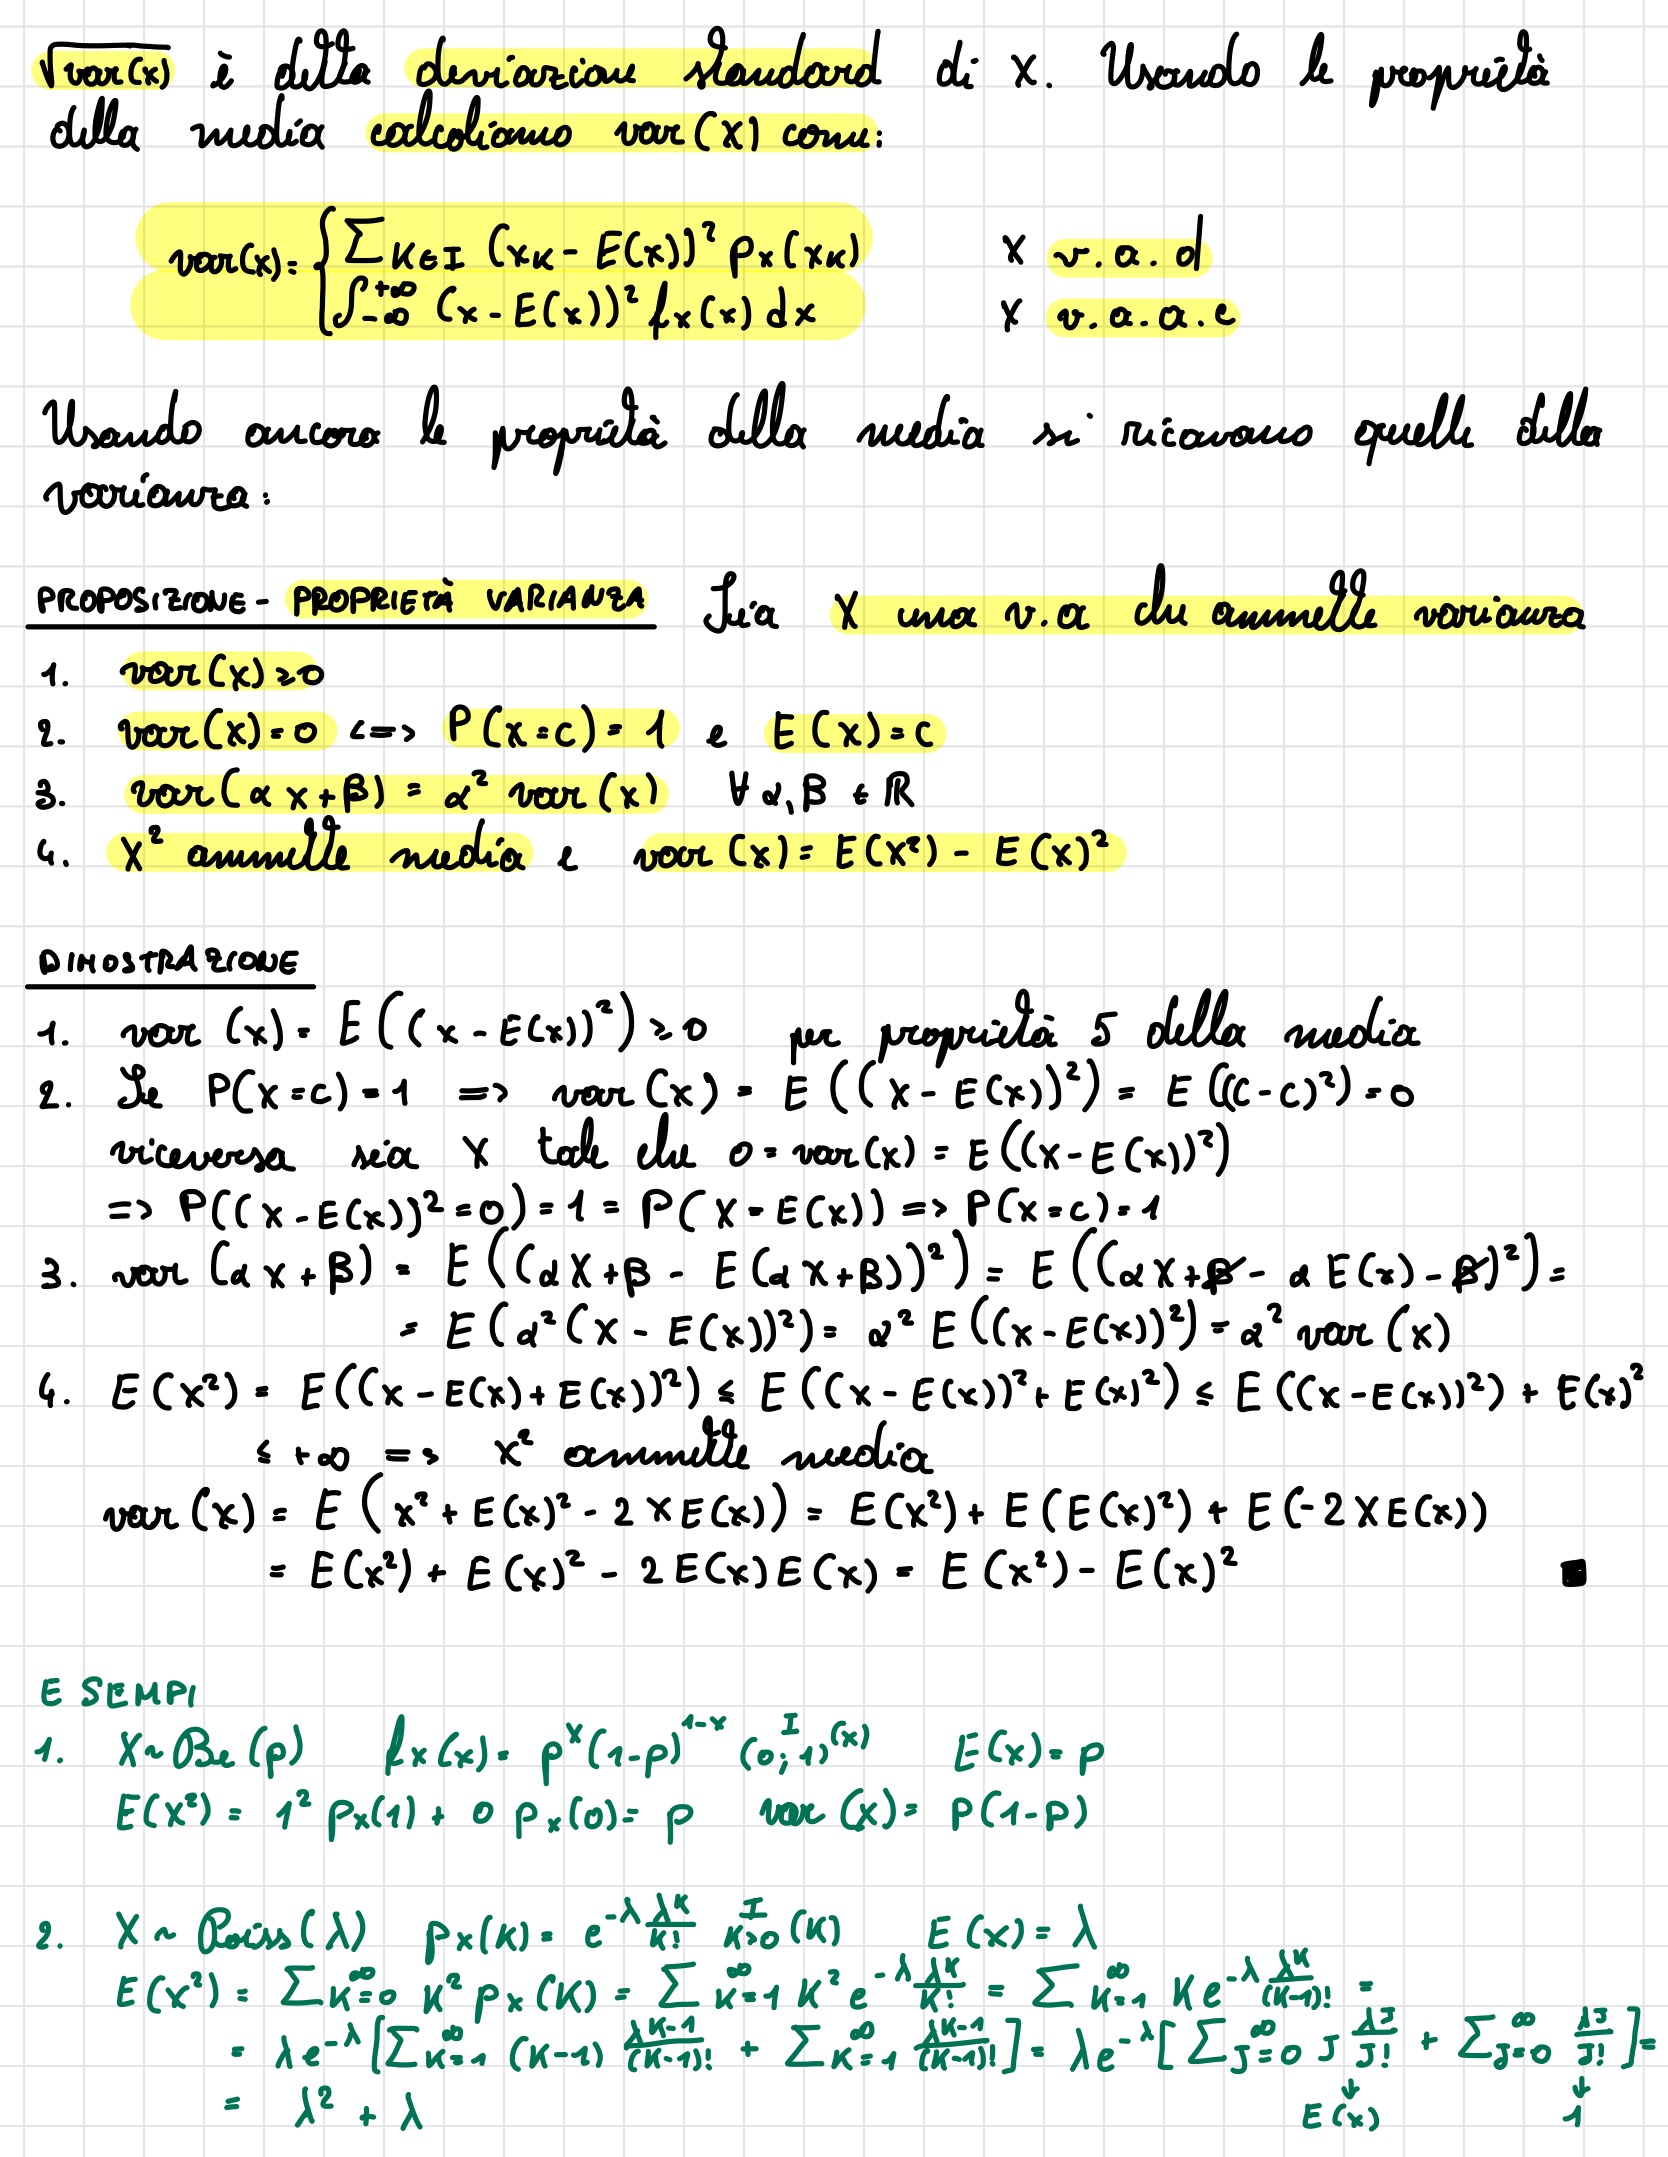 √var(x) è detta deviazione standard di X. Usando le proprietà
della media calcoliamo var(X) come:
var(x) = { ∑_{K∈I} (x_K - E(x))² p_X(x_K)    X v.a.d
∫_{-∞}^{+∞} (x - E(x))² f_X(x) dx    X v.a.a.c
Usando ancora le proprietà della media si ricavano quelle della
varianza:
PROPOSIZIONE - PROPRIETÀ VARIANZA Sia X una v.a che ammette varianza
1. var(X) ≥ 0
2. var(X) = 0 <=> P(X=c) = 1 e E(X) = c
3. var(αX+β) = α² var(X) ∀ α, β ∈ ℝ
4. X² ammette media e var(X) = E(X²) - E(X)²
DIMOSTRAZIONE
1. var(X) = E((X - E(X))²) ≥ 0 per proprietà 5 della media
2. Se P(X=c) = 1 => var(X) = E((X - E(X))²) = E((c-c)²) = 0
viceversa sia X tale che 0 = var(X) = E((X-E(X))²)
=> P((X-E(X))² = 0) = 1 = P(X = E(X)) => P(X=c) = 1
3. var(αX+β) = E((αX+β - E(αX+β))²) = E((αX+β - αE(X) - β)²) =
= E(α²(X - E(X))²) = α² E((X-E(X))²) = α² var(X)
4. E(X²) = E((X - E(X) + E(X))²) ≤ E((X - E(X))² + E(X)²) ≤ E((X-E(X))²) + E(X)²
≤ +∞ => X² ammette media
var(X) = E(X² + E(X)² - 2XE(X)) = E(X²) + E(E(X)²) + E(-2XE(X))
= E(X²) + E(X)² - 2E(X)E(X) = E(X²) - E(X)²
ESEMPI
1. X ~ Be(p) f_X(x) = p^x (1-p)^{1-x} I_{(0;1)}(x) E(X) = p
E(X²) = 1² p_X(1) + 0 p_X(0) = p var(X) = p(1-p)
2. X ~ Poiss(λ) p_X(K) = e^{-λ} λ^K/K! I_{K>0}(K) E(X) = λ
E(X²) = ∑_{K=0}^{∞} K² p_X(K) = ∑_{K=1}^{∞} K² e^{-λ} λ^K/K! = ∑_{K=1}^{∞} K e^{-λ} λ^K/(K-1)! =
= λe^{-λ} [∑_{K=1}^{∞} (K-1) λ^{K-1}/(K-1)! + ∑_{K=1}^{∞} λ^{K-1}/(K-1)!] = λe^{-λ} [∑_{J=0}^{∞} J λ^J/J! + ∑_{J=0}^{∞} λ^J/J!] =
= λ² + λ ↓ E(X) ↓ 1